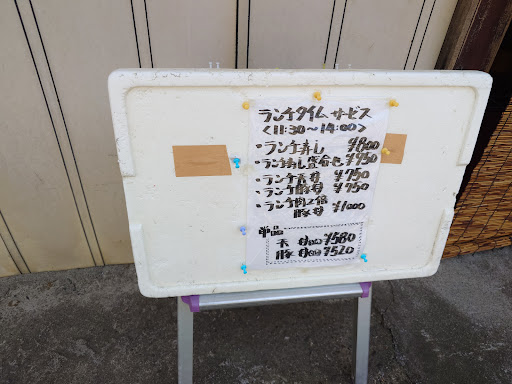 ランチタイムサービス
<11:30～14:00>
・ランチ寿し ¥800
・ランチ寿し盛合せ ¥950
・ランチ天丼 ¥750
・ランチ豚丼 ¥750
・ランチ肉2倍
豚丼 ¥1000
単品
天丼 ¥580
豚丼 ¥520